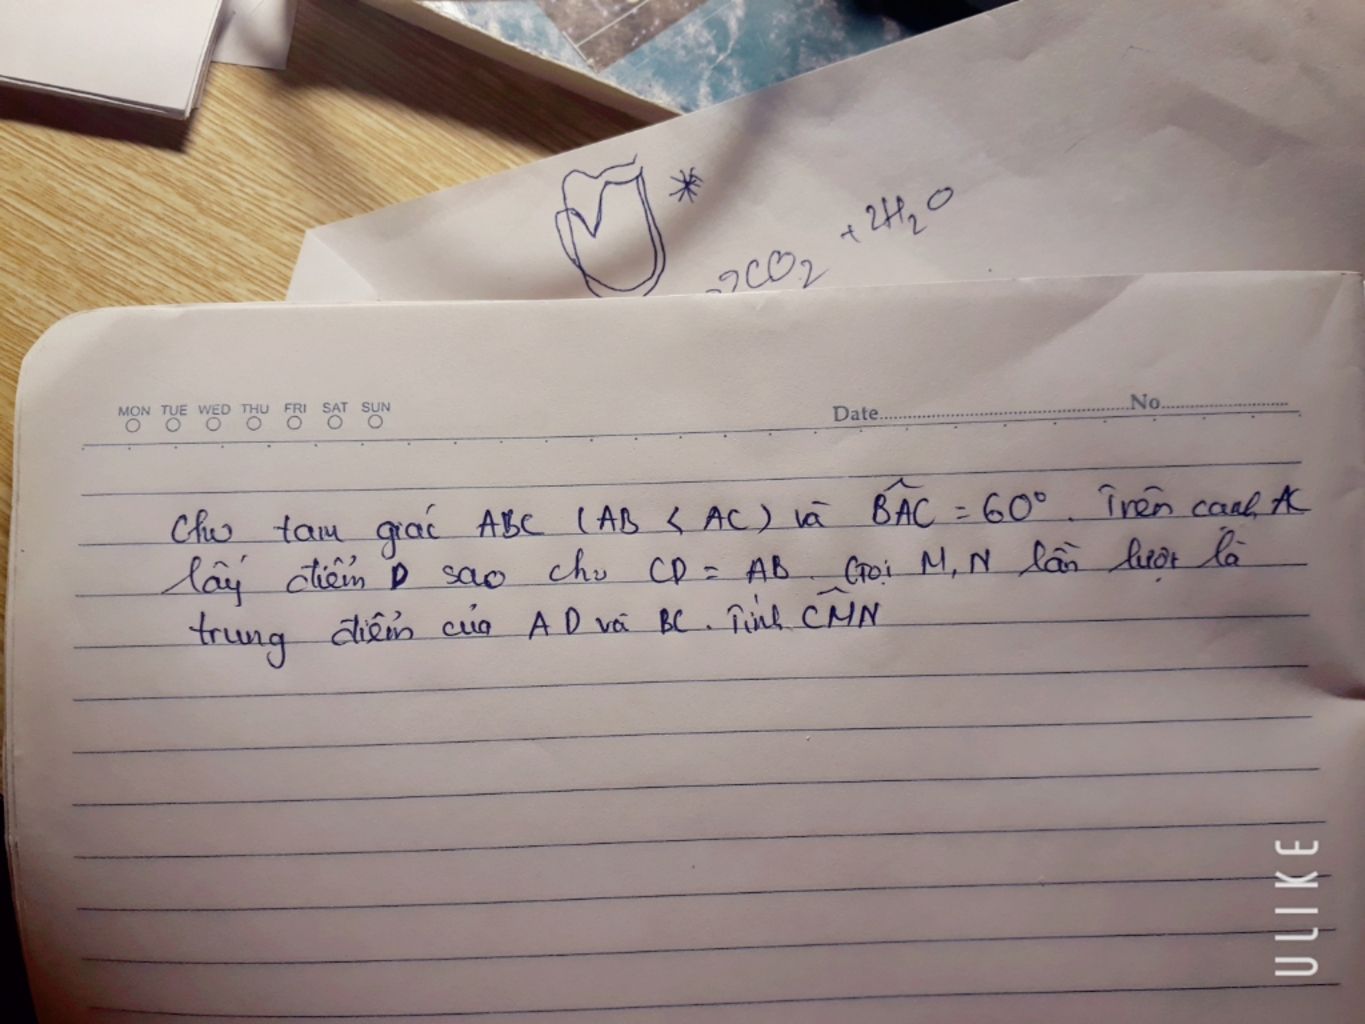 2CO2 + 2H2O
MON TUE WED THU FRI SAT SUN
Date No
Cho tam giác ABC (AB < AC) và BAC = 60°. Trên cạnh AC
lấy điểm D sao cho CD = AB. Gọi M, N lần lượt là
trung điểm của AD và BC. Tính CMN
ULIKE